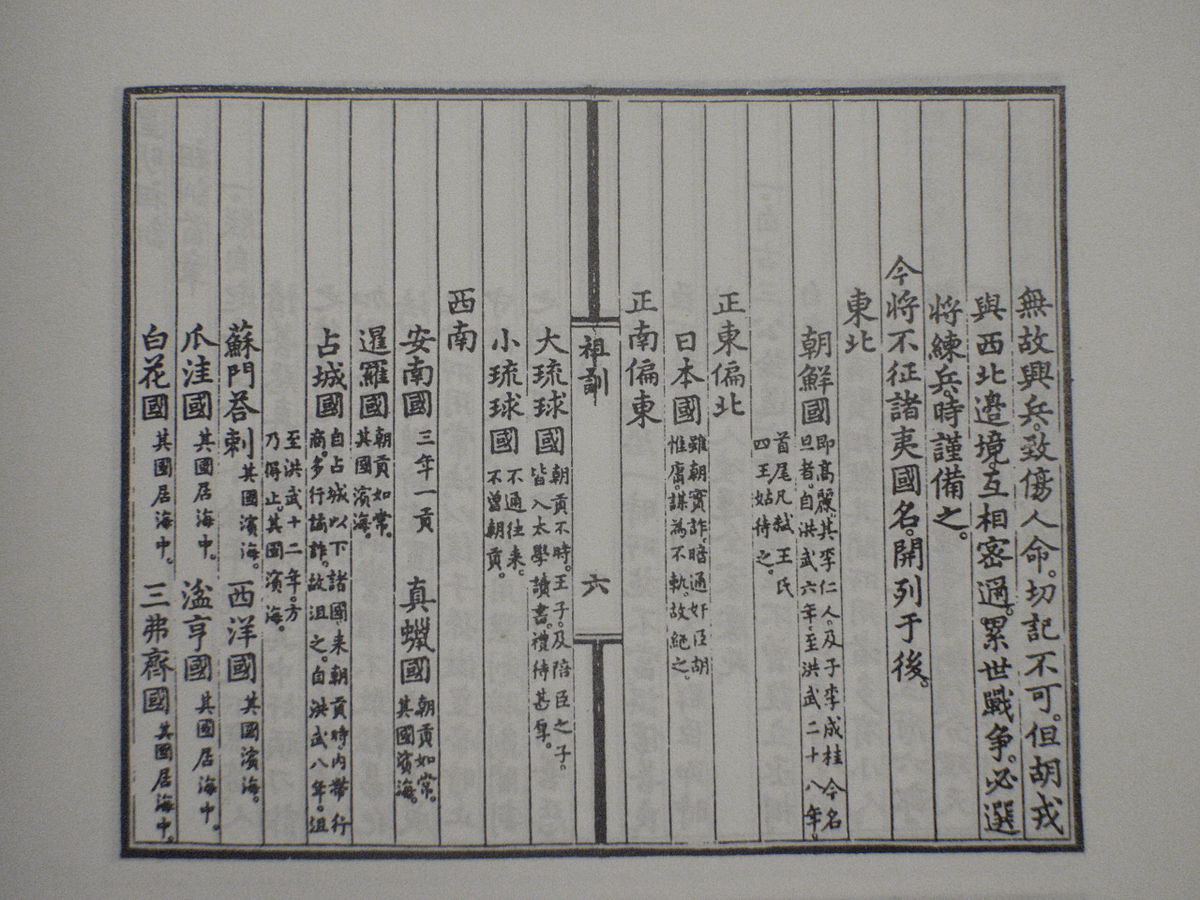 無故興兵。致傷人命。切記不可。但胡戎
與西北邊境。互相密邇。累世戰争。必選
將練兵。時謹備之。
今將不征諸夷國名。開列于後。
東北
朝鮮國 即高麗。其李仁人。及子李成桂 今名
旦者。自洪武六年。至洪武二十八年。
首尾凡弒王氏
四王。姑待之。
正東偏北
日本國 雖朝實詐。暗通奸臣胡
惟庸。謀為不軌。故絶之。
正南偏東
祖訓 六
大琉球國 朝貢不時。王子。及陪臣之子。
皆入太學讀書。禮待甚厚。
小琉球國 不通往来。
不曾朝貢。
西南
安南國 三年一貢 真蠟國 朝貢如常。
其國濱海。
暹羅國 朝貢如常。
其國濱海。
占城國 自占城以下諸國。来朝貢時。内帶行
商。多行譎詐。故沮之。自洪武八年。沮
至洪武十二年。方
乃得止。其國濱海。
蘇門荅剌 其國濱海。 西洋國 其國濱海。
爪洼國 其國居海中。 湓亨國 其國居海中。
白花國 其國居海中。 三弗齊國 其國居海中。